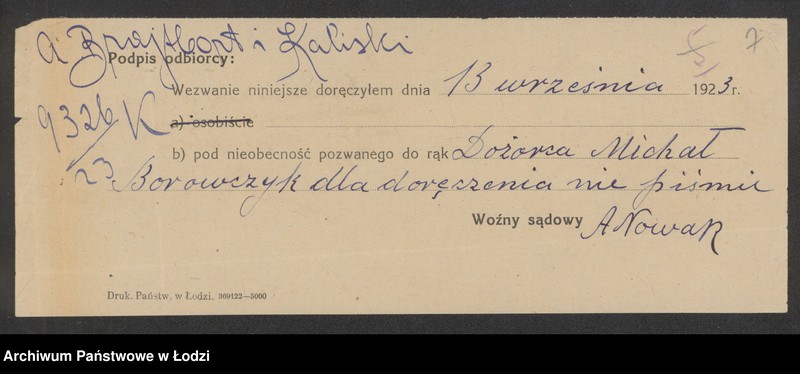 a Brajtbort i Kaliski
7
Podpis odbiorcy:
Wezwanie niniejsze doręczyłem dnia 13 września 1923 r.
9326/23 K
a) osobiście
b) pod nieobecność pozwanego do rąk Dozorca Michał
Borowczyk dla doręczenia nie piśmie
Woźny sądowy ANowak
Druk. Państw. w Łodzi. 369122—5000
Archiwum Państwowe w Łodzi